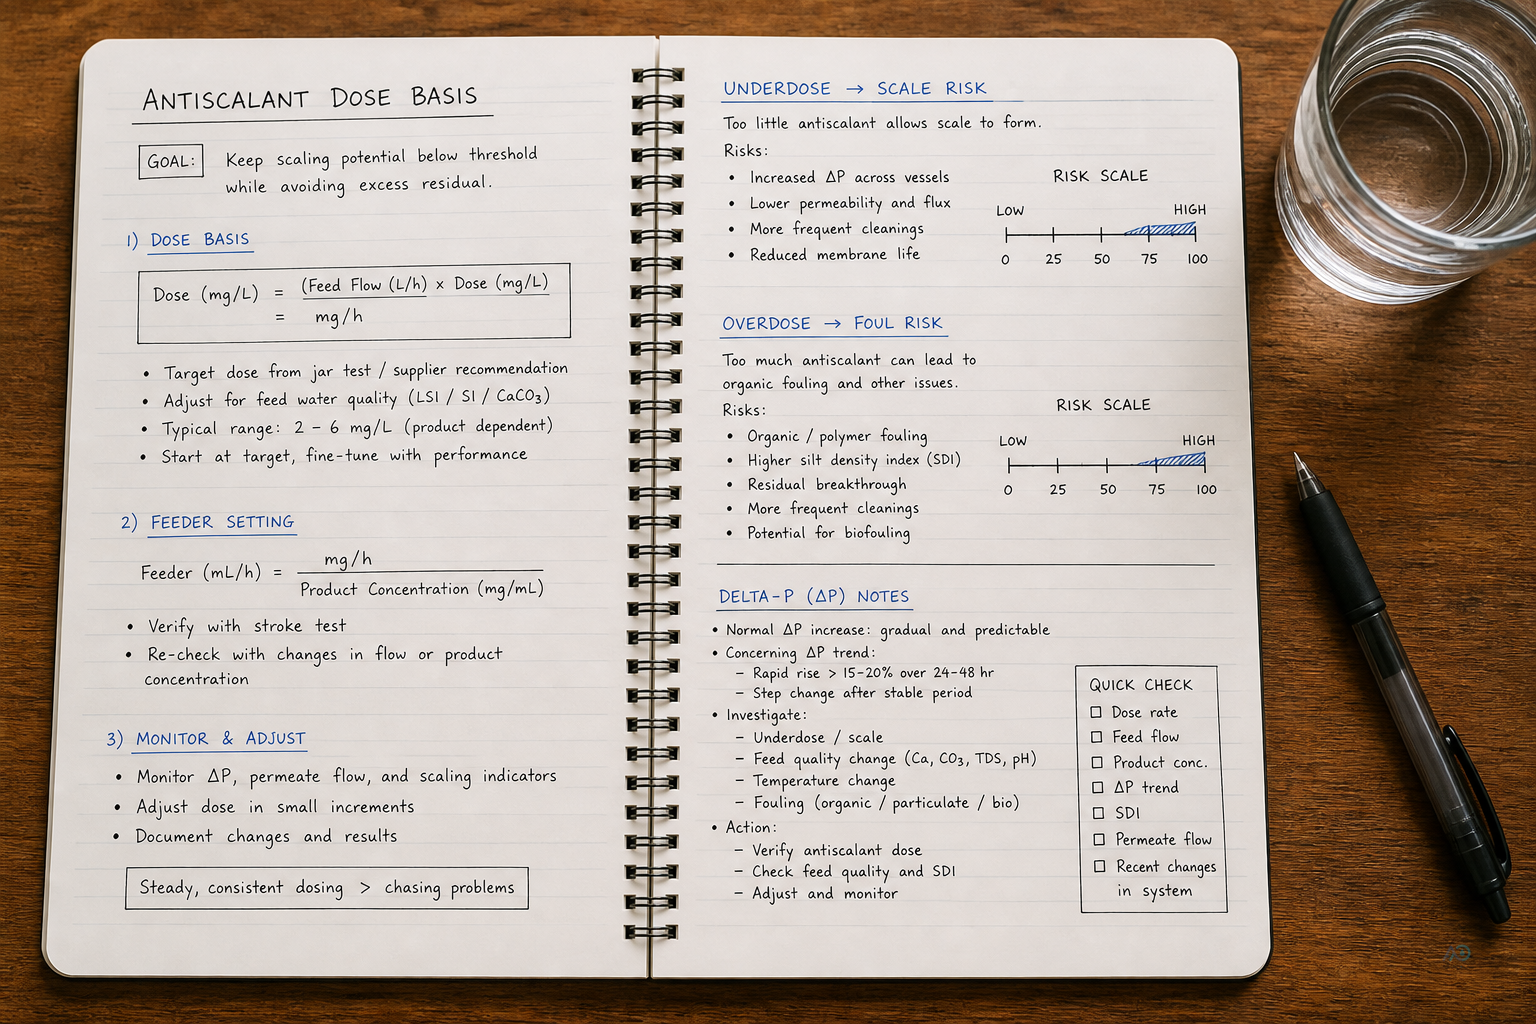 ANTISCALANT DOSE BASIS
GOAL: Keep scaling potential below threshold
while avoiding excess residual.
1) DOSE BASIS
Dose (mg/L) = (Feed Flow (L/h) x Dose (mg/L)
= mg/h
• Target dose from jar test / supplier recommendation
• Adjust for feed water quality (LSI / SI / CaCO₃)
• Typical range: 2 – 6 mg/L (product dependent)
• Start at target, fine-tune with performance
2) FEEDER SETTING
mg/h
Feeder (mL/h) =
Product Concentration (mg/mL)
• Verify with stroke test
• Re-check with changes in flow or product
concentration
3) MONITOR & ADJUST
• Monitor ΔP, permeate flow, and scaling indicators
• Adjust dose in small increments
• Document changes and results
Steady, consistent dosing > chasing problems
UNDERDOSE → SCALE RISK
Too little antiscalant allows scale to form.
Risks:
• Increased ΔP across vessels
• Lower permeability and flux
• More frequent cleanings
• Reduced membrane life
RISK SCALE
LOW HIGH
0 25 50 75 100
OVERDOSE → FOUL RISK
Too much antiscalant can lead to
organic fouling and other issues.
Risks:
• Organic / polymer fouling
• Higher silt density index (SDI)
• Residual breakthrough
• More frequent cleanings
• Potential for biofouling
RISK SCALE
LOW HIGH
0 25 50 75 100
DELTA-P (ΔP) NOTES
• Normal ΔP increase: gradual and predictable
• Concerning ΔP trend:
– Rapid rise > 15-20% over 24-48 hr
– Step change after stable period
• Investigate:
– Underdose / scale
– Feed quality change (Ca, CO₃, TDS, pH)
– Temperature change
– Fouling (organic / particulate / bio)
• Action:
– Verify antiscalant dose
– Check feed quality and SDI
– Adjust and monitor
QUICK CHECK
☐ Dose rate
☐ Feed flow
☐ Product conc.
☐ ΔP trend
☐ SDI
☐ Permeate flow
☐ Recent changes
in system